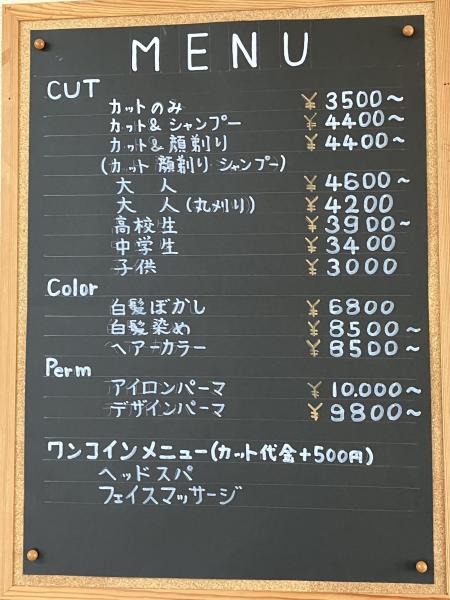 MENU
CUT
カットのみ ¥3500～
カット&シャンプー ¥4400～
カット&顔剃り ¥4400～
(カット 顔剃り シャンプー)
大人 ¥4600～
大人(丸刈り) ¥4200
高校生 ¥3900～
中学生 ¥3400
子供 ¥3000
Color
白髪ぼかし ¥6800
白髪染め ¥8500～
ヘアーカラー ¥8500～
Perm
アイロンパーマ ¥10.000～
デザインパーマ ¥9800～
ワンコインメニュー(カット代金+500円)
ヘッドスパ
フェイスマッサージ